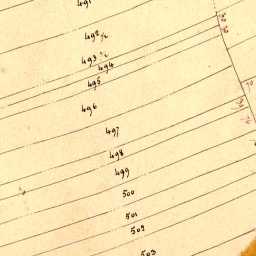 491
492
493
494
495
496
497
498
499
500
501
502
503